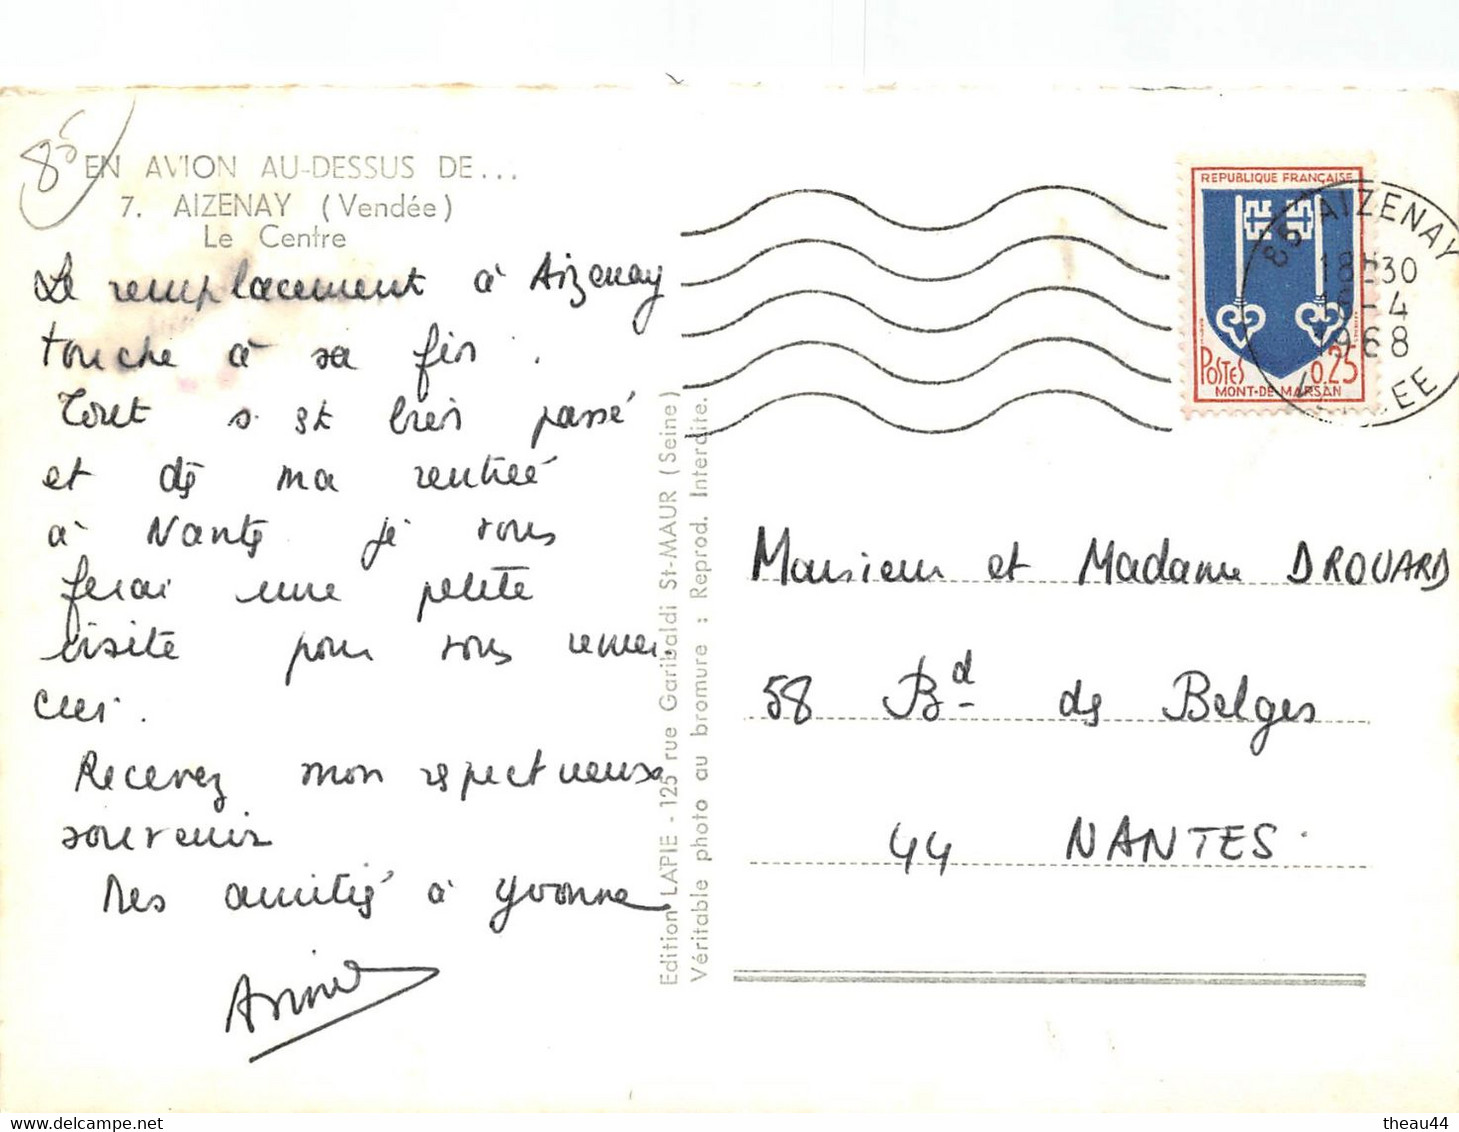 85
EN AVION AU-DESSUS DE...
7. AIZENAY (Vendée)
Le Centre
Le remplacement à Aizenay
touche à sa fin.
Tout s'est bien passé
et dès ma rentrée
à Nantes je vous
ferai une petite
visite pour vous remer-
cier.
Recevez mon respectueux
souvenir
Mes amitiés à Yvonne
Edition LAPIE - 125 rue Garibaldi St-MAUR (Seine)
Véritable photo au bromure : Reprod. Interdite.
REPUBLIQUE FRANÇAISE
POSTES 0,25
MONT-DE-MARSAN
85 AIZENAY
18H30
-4
1968
Monsieur et Madame DROUARD
58 Bd de Belges
44 NANTES.
theau44